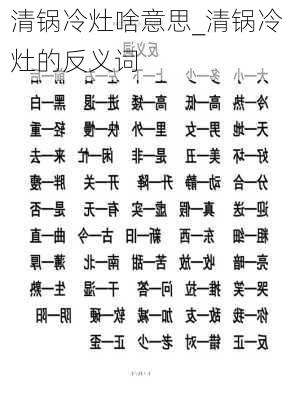 清锅冷灶啥意思_清锅冷
灶的反义词
反义词
大—小 多—少 上—下 左—右 前—后
冷—热 高—低 高—矮 进—退 黑—白
天—地 男—女 里—外 快—慢 轻—重
好—坏 美—丑 是—非 闲—忙 来—去
分—合 动—静 升—降 开—关 胖—瘦
迎—送 真—假 虚—实 有—无 是—否
粗—细 东—西 新—旧 古—今 曲—直
亮—暗 收—放 苦—甜 南—北 薄—厚
哭—笑 推—拉 问—答 干—湿 生—熟
你—我 敌—友 加—减 软—硬 阴—阳
反—正 错—对 老—少 正—歪